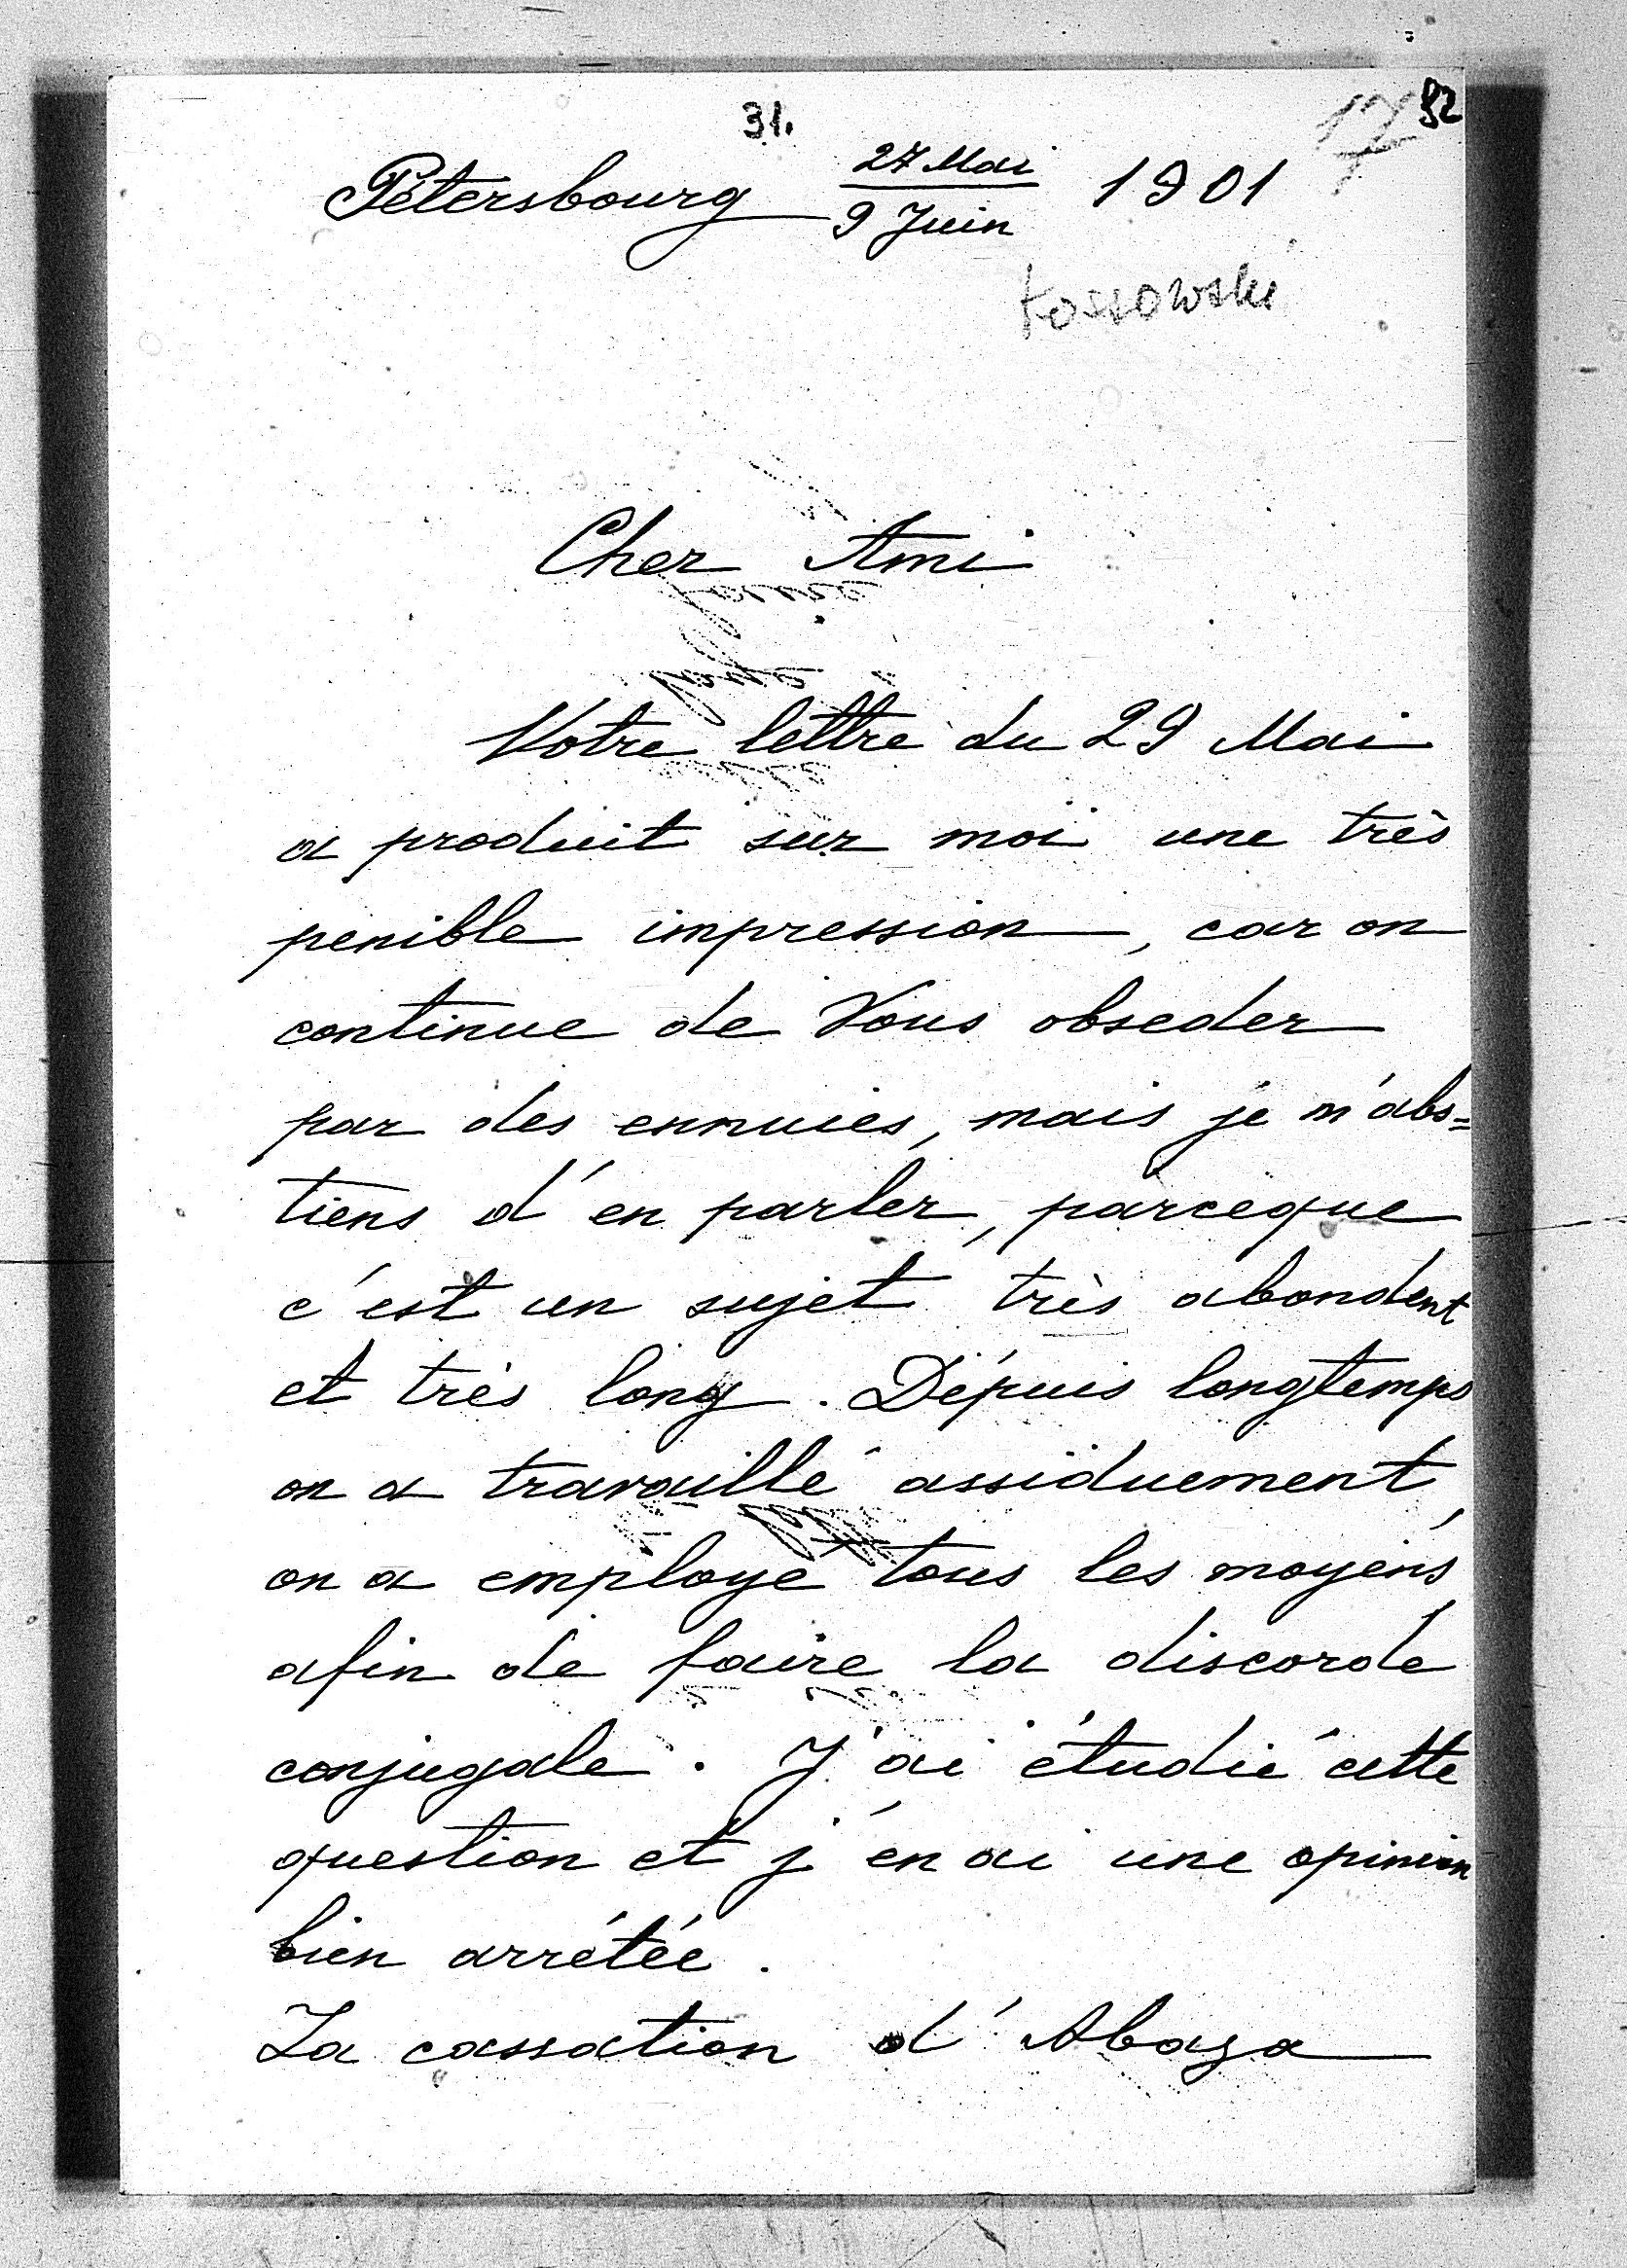 31.
17 92
Pétersbourg 27 Mai / 9 Juin 1901
Łossowski
Cher Ami
Votre lettre du 29 Mai
a produit sur moi une très
penible impression, car on
continue de Vous obseder
par des ennuies, mais je m'abs=
tiens d'en parler, parceque
c'est un sujet très abondent
et très long. Dépuis longtemps
on a travaillé assiduement,
on a employé tous les moyens
afin de faire la discorde
conjugale. J'ai étudié cette
question et j'en ai une opinion
bien arrétée.
La cassation d'Abaza